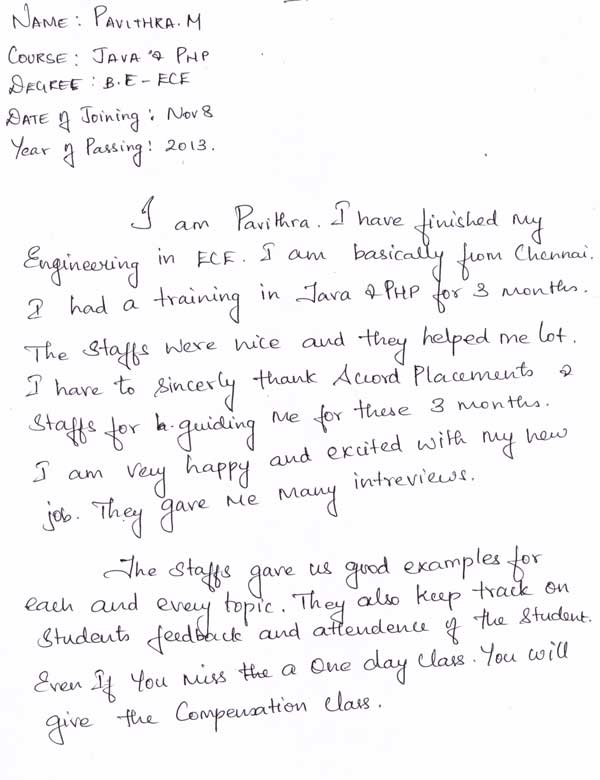 NAME: PAVITHRA.M
COURSE: JAVA & PHP
DEGREE: B.E - ECE
DATE of Joining: Nov 8
Year of Passing: 2013.
I am Pavithra. I have finished my
Engineering in ECE. I am basically from Chennai.
I had a training in Java & PHP for 3 months.
The Staffs were nice and they helped me lot.
I have to sincerly thank Accord Placements &
Staffs for guiding me for these 3 months.
I am very happy and excited with my new
job. They gave me many intreviews.
The Staffs gave us good examples for
each and every topic. They also keep track on
Students feedback and attendence of the Student.
Even If You miss the a One day Class. You will
give the Compensation Class.